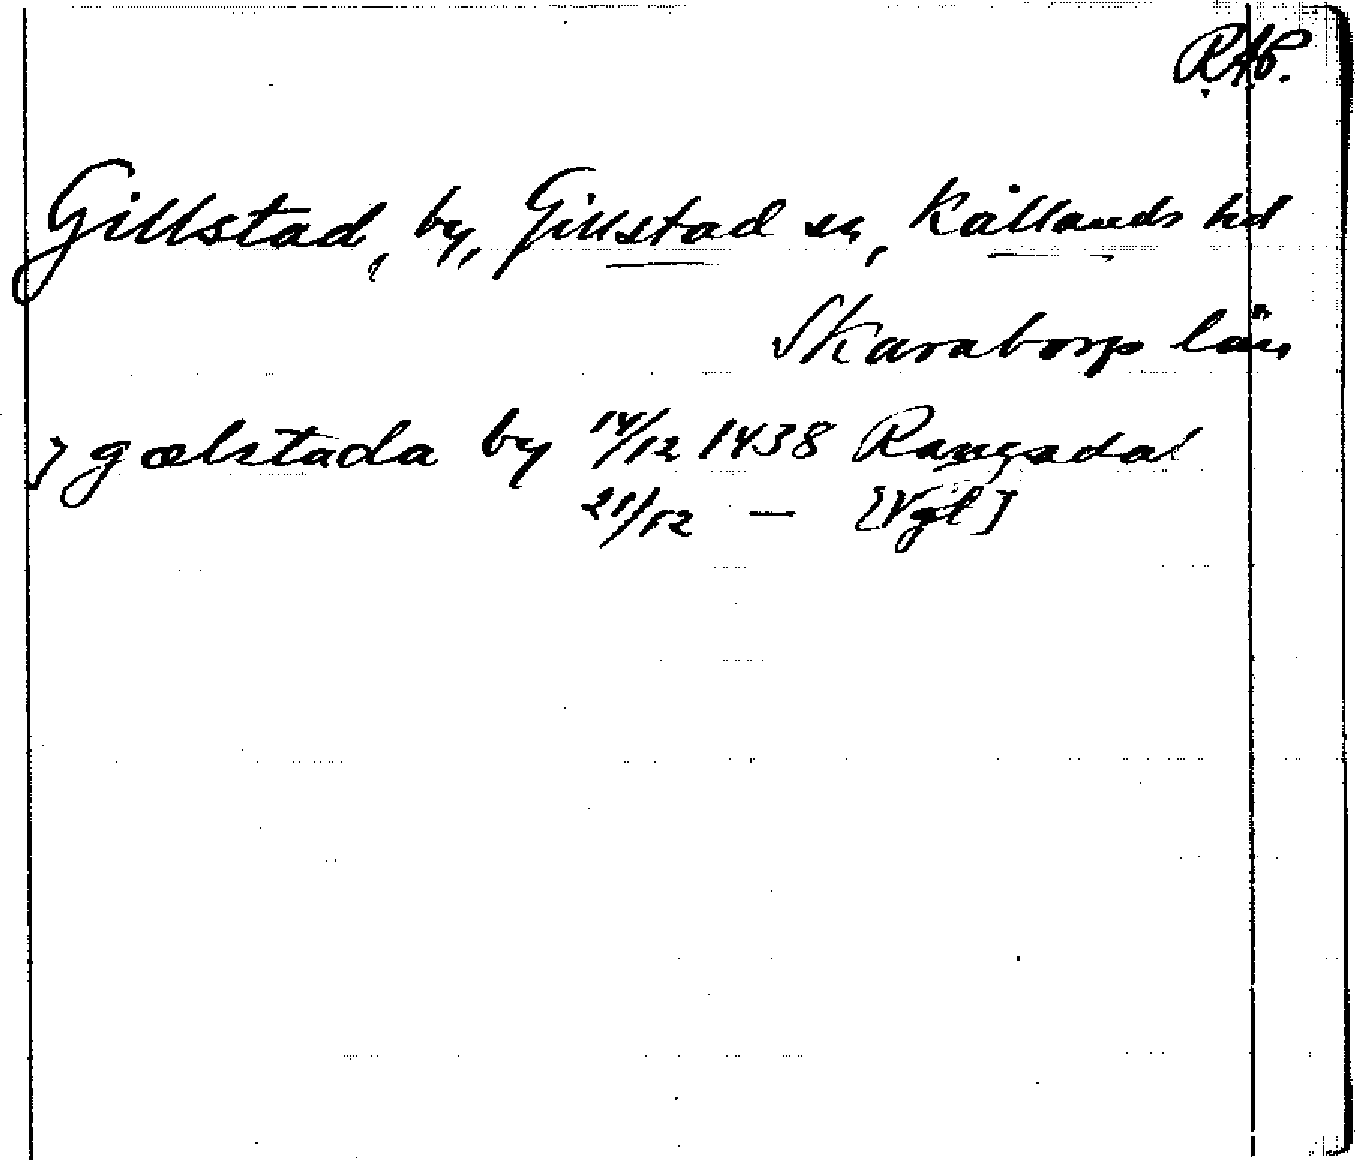 RAP.
Gillstad, by, Gillstad sn, Kållands hd
Skaraborgs län
j gælstada by 14/12 1438 Rangsdal
21/12 — [Vgl]